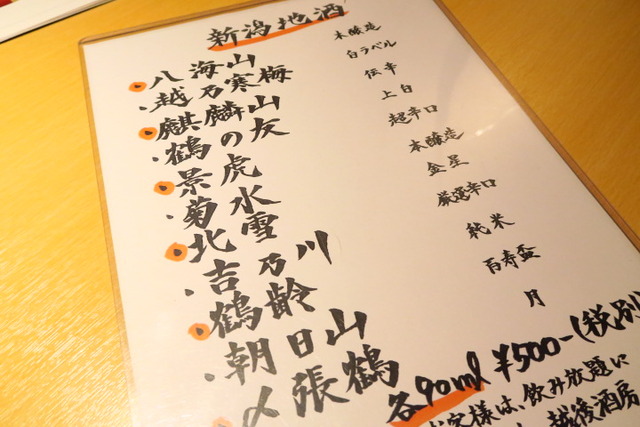 新潟地酒
八海山 本醸造
越乃寒梅 白ラベル
麒麟山 伝辛
鶴の友 上白
景虎 超辛口
菊水 本醸造
北雪 金星
吉乃川 厳選辛口
鶴齢 純米
朝日山 百寿盃
〆張鶴 月
各90ml ¥500-(税別)
お客様は、飲み放題に
越後酒房